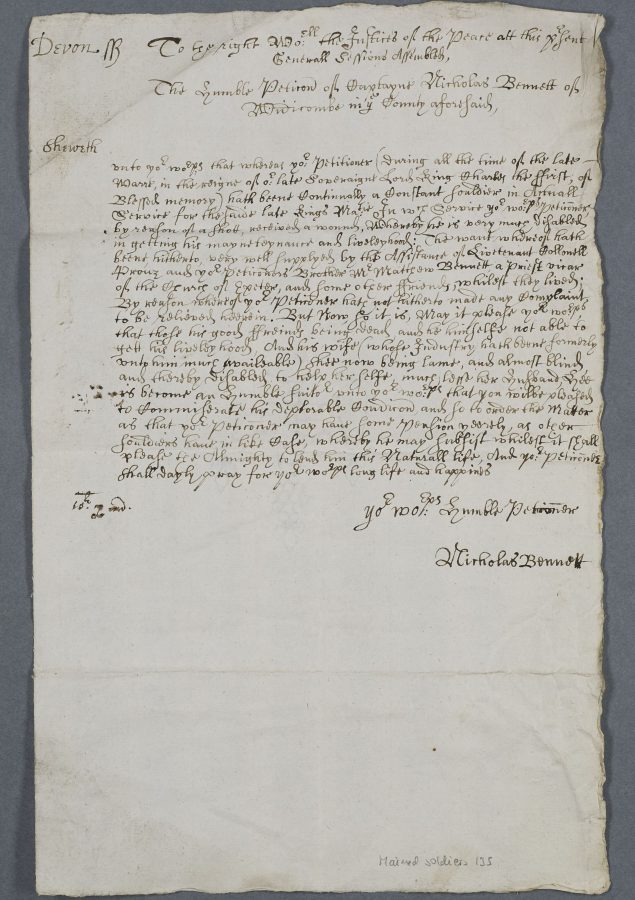 Devon ss To the right Wor:ll the Justices of the Peace att this p'sent
Generall Sessions Assembled,
The Humble Petic̃on of Captayne Nicholas Bennett of
Widicombe in ye County aforesaid,
Sheweth
unto yor worps that whereas yor Petitioner (during all the time of the late
Warre, in the reigne of or late Soveraigne Lord King Charles the ffirst, of
Blessed memory) hath beene Continually a Constant Souldier in Actuall
Service for the saide late Kings Matie In wch Service yor worps Petitioner
by reason of a Shot, received a wound, Whereby he is very much disabled
in getting his mayneteynance and livelyhood; The want whereof hath
beene hitherto, very well supplyed by the Assistance of Livetenant Collonell
Prouz and yor Petic̃oners Brother Mr Mathew Bennett a Priest vicar
of the Church of Exeter, and some other ffriends, whilest they lived;
By reason whereof yor Petic̃oner hath not hitherto made any Complaint
to be relieved herein. But Now So it is, May it please yor worps
that those his good ffreinds being dead, and he himselfe not able to
gett his livelyhood, And his wife (whose Industry hath beene formerly
unto him much availeable) Shee now being lame, and almost blind
and thereby disabled to help her selfe, much lesse her Husband Hee
is become an Humble Suitor unto yor worps that you wilbe pleased
to Commiserate his deplorable Condic̃on and so to order the Matter
as that yor Petic̃oner may have some Pension yeerely, as other
Souldiers have in like Case, whereby he may subsist whilest it shall
please the Almighty to lend him this Naturall life, And yor Petic̃oner
shall dayly pray for yor worps long life and happines
yor wo:rps Humble Petic̃oner
Nicholas Bennett
Maimed soldiers 135